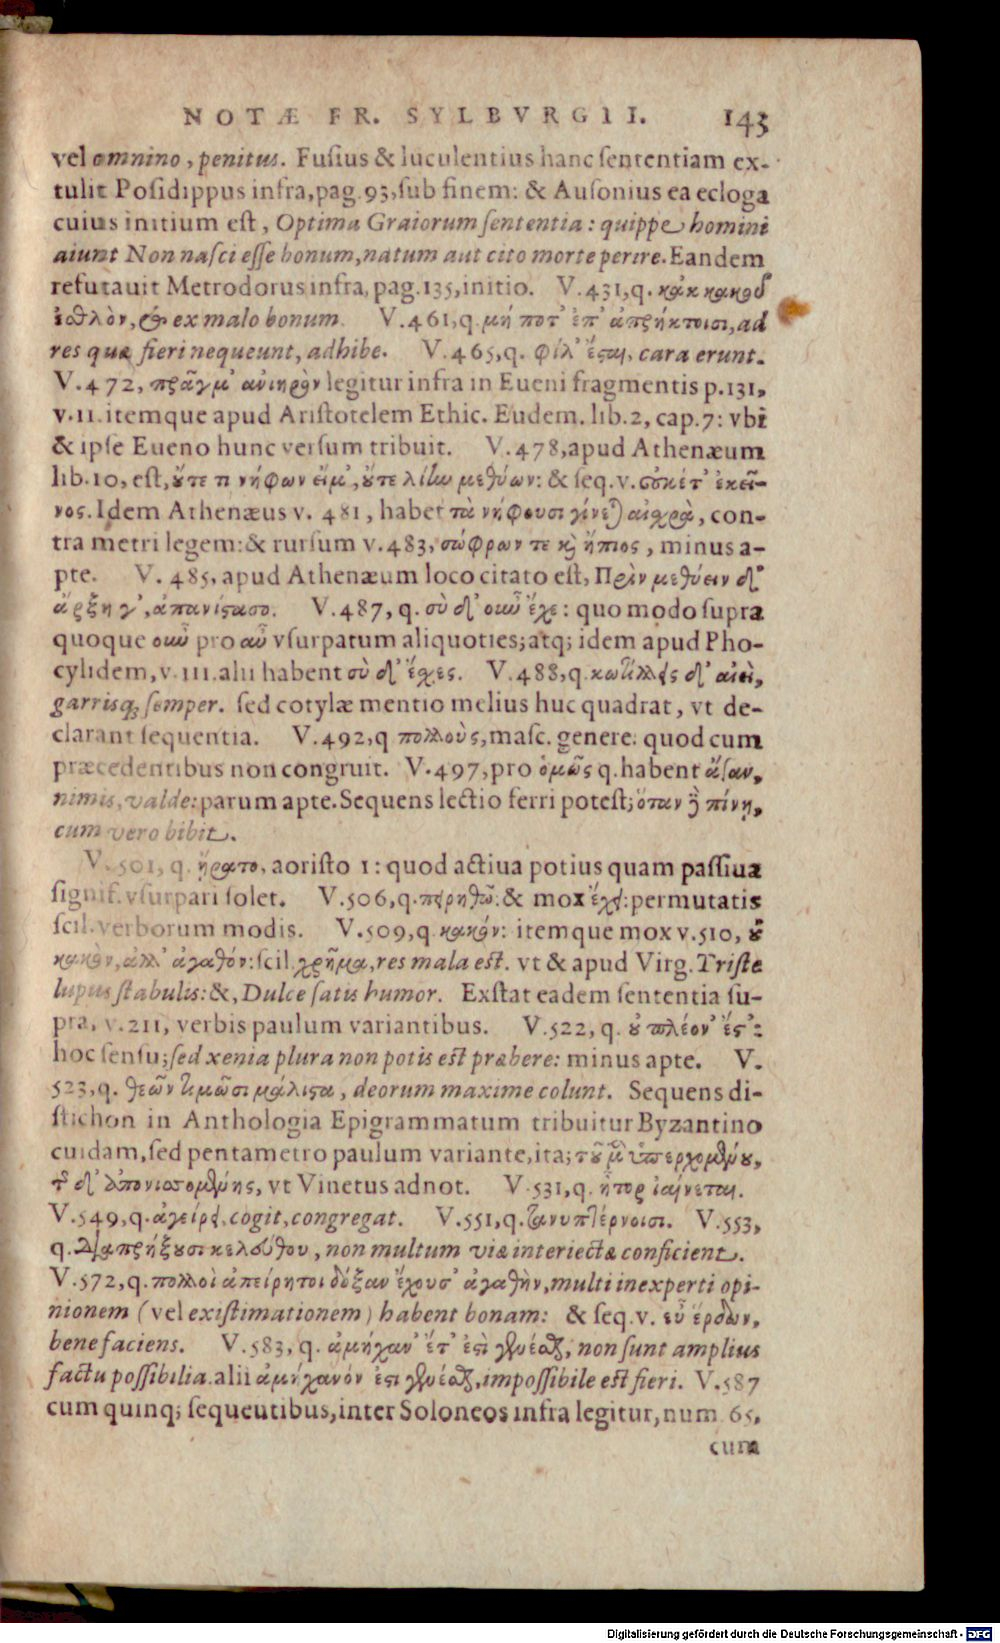 NOTÆ FR. SYLBVRGII. 143
vel omnino, penitus. Fusius & luculentius hanc sententiam ex-
tulit Posidippus infra, pag. 93, sub finem: & Ausonius ea ecloga
cuius initium est, Optima Graiorum sententia: quippe homini
aiunt Non nasci esse bonum, natum aut cito morte perire. Eandem
refutauit Metrodorus infra, pag. 135, initio. V. 431, q. κἀκ κακοῦ
ἐσθλὸν, & ex malo bonum. V. 461, q. μή ποτ' ἐπ' ἀπρήκτοισι, ad
res quæ fieri nequeunt, adhibe. V. 465, q. φίλ' ἔσται, cara erunt.
V. 472, πρᾶγμ' ἀνιηρὸν legitur infra in Eueni fragmentis p. 131,
v. 11. itemque apud Aristotelem Ethic. Eudem. lib. 2, cap. 7: vbi
& ipse Eueno hunc versum tribuit. V. 478, apud Athenæum
lib. 10, est, οὔτε τι νήφων εἴμ', οὔτε λίην μεθύων: & seq. v. οὐκέτ' ἐκεῖ-
νος. Idem Athenæus v. 481, habet τὰ νήφουσι γίνεται αἰσχρὰ, con-
tra metri legem: & rursum v. 483, σώφρων τε καὶ ἤπιος, minus a-
pte. V. 485, apud Athenæum loco citato est, Πρὶν μεθύειν δ'
ἄρξῃ γ', ἀπανίστασο. V. 487, q. σὺ δ' οὖν ἔχε: quo modo supra
quoque οὖν pro αὖ vsurpatum aliquoties; atq; idem apud Pho-
cylidem, v. 111. alii habent σὺ δ' ἔχες. V. 488, q. κωτίλλεις δ' αἰεὶ,
garrisq; semper. sed cotylæ mentio melius huc quadrat, vt de-
clarant sequentia. V. 492, q πολλοὺς, masc. genere. quod cum
præcedentibus non congruit. V. 497, pro ὁμῶς q. habent ἄγαν,
nimis, valde: parum apte. Sequens lectio ferri potest; ὅταν δὲ πίνῃ,
cum vero bibit.
V. 501, q. ἤρατο, aoristo 1: quod actiua potius quam passiua
signif. vsurpari solet. V. 506, q. πειρηθῶ: & mox ἔχει: permutatis
scil. verborum modis. V. 509, q. κακόν: itemque mox v. 510, οὐ
κακὸν, ἀλλ' ἀγαθόν: scil. χρῆμα, res mala est. vt & apud Virg. Triste
lupus stabulis: &, Dulce satis humor. Exstat eadem sententia su-
pra, v. 211, verbis paulum variantibus. V. 522, q. οὐ πλέον' ἔς':
hoc sensu; sed xenia plura non potis est præbere: minus apte. V.
523, q. θεῶν τιμῶσι μάλιστα, deorum maxime colunt. Sequens di-
stichon in Anthologia Epigrammatum tribuitur Byzantino
cuidam, sed pentametro paulum variante, ita; τοῦ μὲν ὑπερχομένου,
τῆς δ' ἀπονισομένης, vt Vinetus adnot. V. 531, q. ἦτορ ἰαίνεται.
V. 549, q. ἀγείρει, cogit, congregat. V. 551, q. τανυπτέρνοισι. V. 553,
q. διαπρήξουσι κελεύθου, non multum viæ interiectæ conficient.
V. 572, q. πολλοὶ ἀπείρητοι δόξαν ἔχουσ' ἀγαθὴν, multi inexperti opi-
nionem (vel existimationem) habent bonam: & seq. v. εὖ ἔρδων,
benefaciens. V. 583, q. ἀμήχαν' ἔτ' ἐστὶ γενέσθαι, non sunt amplius
factu possibilia. alii ἀμήχανόν ἐστι γενέσθαι, impossibile est fieri. V. 587
cum quinq; sequeutibus, inter Soloneos infra legitur, num 65,
cum
Digitalisierung gefördert durch die Deutsche Forschungsgemeinschaft - DFG